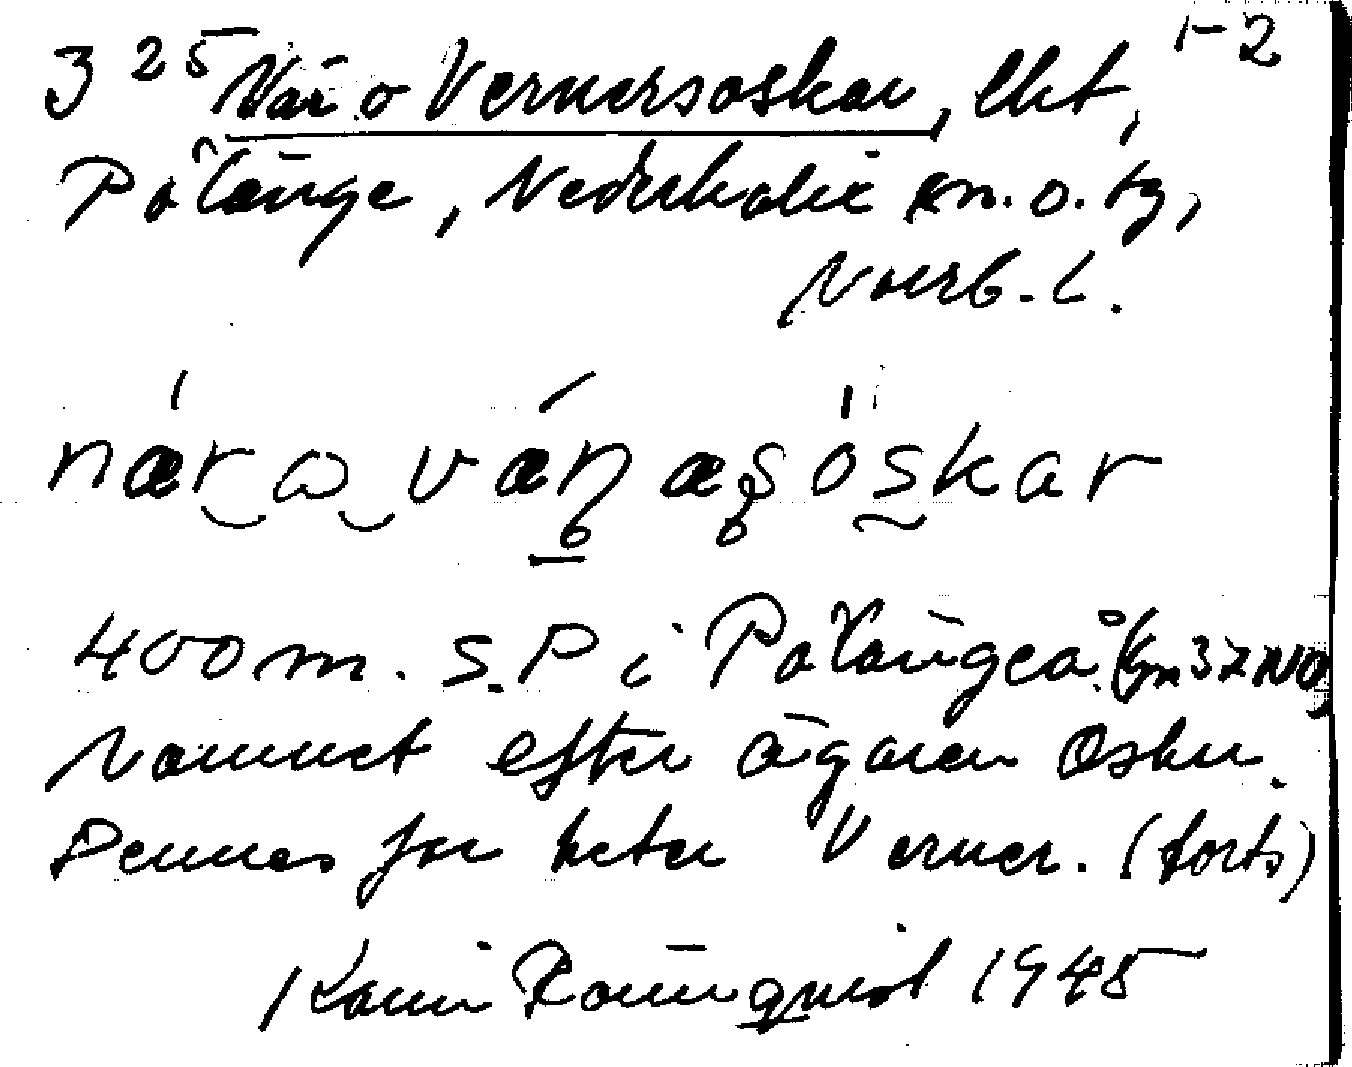 3 25 När o Vernersoskar, lht, 1-2
Pålänge, Nederkalix sn. o. tg,
Norrb. l.
nær o væn æsóskar
400 m. S. P i Pålängeå.
Namnet efter ägaren Oskar.
Dennes far heter Verner. (forts)
Karin Rönnqvist 1945